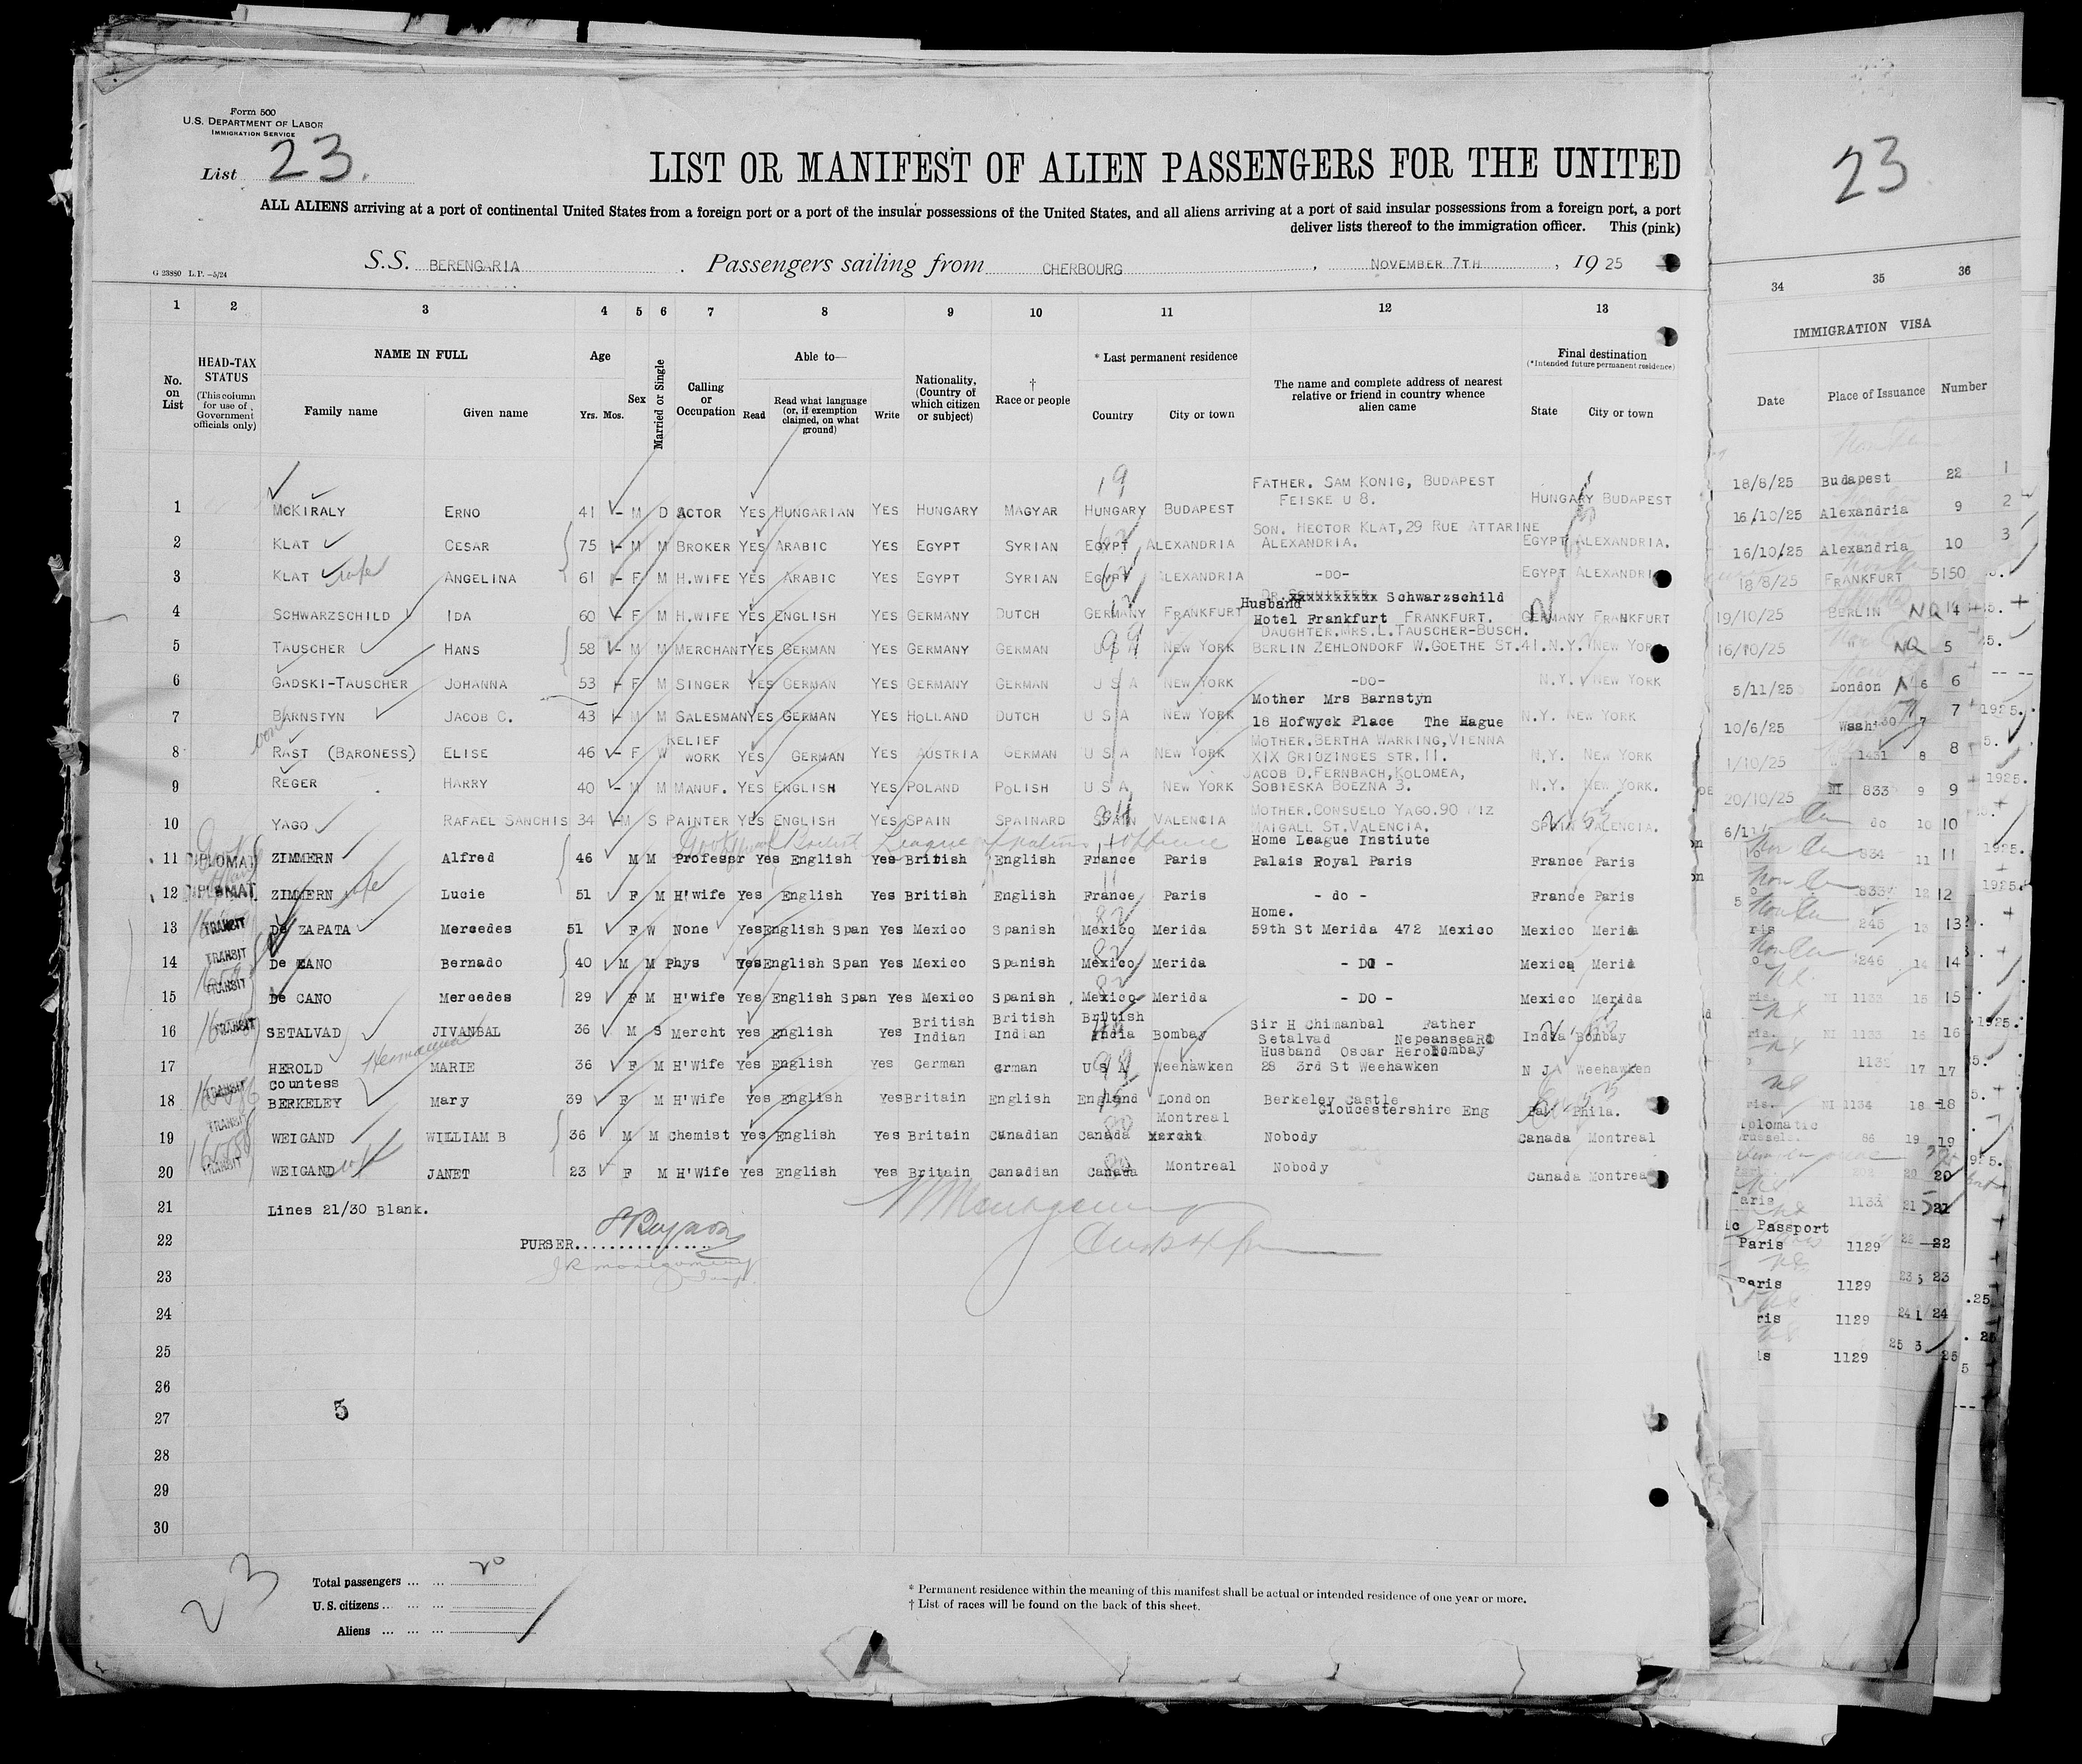 Form 500
U.S. DEPARTMENT OF LABOR
IMMIGRATION SERVICE
List 23.
LIST OR MANIFEST OF ALIEN PASSENGERS FOR THE UNITED
ALL ALIENS arriving at a port of continental United States from a foreign port or a port of the insular possessions of the United States, and all aliens arriving at a port of said insular possessions from a foreign port, a port
deliver lists thereof to the immigration officer. This (pink)
G 23880 L.P. —5/24
S.S. BERENGARIA. Passengers sailing from CHERBOURG, NOVEMBER 7TH, 19 25
1 2 3 4 5 6 7 8 9 10 11 12 13
No. on List
HEAD-TAX STATUS (This column for use of Government officials only)
NAME IN FULL
Family name Given name
Age Yrs. Mos.
Sex
Married or Single
Calling or Occupation
Able to—
Read Read what language (or, if exemption claimed, on what ground) Write
Nationality, (Country of which citizen or subject)
† Race or people
* Last permanent residence
Country City or town
The name and complete address of nearest relative or friend in country whence alien came
Final destination
(*Intended future permanent residence)
State City or town
FATHER. SAM KONIG, BUDAPEST
1 MCKIRALY ERNO 41 M D ACTOR YES HUNGARIAN YES HUNGARY MAGYAR HUNGARY BUDAPEST FEISKE U 8. HUNGARY BUDAPEST
SON. HECTOR KLAT, 29 RUE ATTARINE
2 KLAT CESAR 75 M M BROKER YES ARABIC YES EGYPT SYRIAN EGYPT ALEXANDRIA ALEXANDRIA. EGYPT ALEXANDRIA.
3 KLAT wife ANGELINA 61 F M H.WIFE YES ARABIC YES EGYPT SYRIAN EGYPT ALEXANDRIA -DO- EGYPT ALEXANDRIA
Husband Schwarzschild
4 SCHWARZSCHILD IDA 60 F M H.WIFE YES ENGLISH YES GERMANY DUTCH GERMANY FRANKFURT Hotel Frankfurt FRANKFURT. GERMANY FRANKFURT
DAUGHTER.MRS.L.TAUSCHER-BUSCH.
5 TAUSCHER HANS 58 M M MERCHANT YES GERMAN YES GERMANY GERMAN U S A NEW YORK BERLIN ZEHLONDORF W.GOETHE ST.41. N.Y. NEW YORK
6 GADSKI-TAUSCHER JOHANNA 53 F M SINGER YES GERMAN YES GERMANY GERMAN U S A NEW YORK -DO- N.Y. NEW YORK
Mother Mrs Barnstyn
7 BARNSTYN JACOB C. 43 M M SALESMAN YES GERMAN YES HOLLAND DUTCH U S A NEW YORK 18 Hofwyck Place The Hague N.Y. NEW YORK
MOTHER.BERTHA WARRING,VIENNA
8 von RAST (BARONESS) ELISE 46 F W RELIEF WORK YES GERMAN YES AUSTRIA GERMAN U S A NEW YORK XIX GRIOZINGES STR.11. N.Y. NEW YORK
JACOB D.FERNBACH,KOLOMEA,
9 REGER HARRY 40 M M MANUF. YES ENGLISH YES POLAND POLISH U S A NEW YORK SOBIESKA BOEZNA 3. N.Y. NEW YORK.
MOTHER.CONSUELO YAGO.90
10 YAGO RAFAEL SANCHIS 34 M S PAINTER YES ENGLISH YES SPAIN SPAINARD SPAIN VALENCIA MAIGALL ST.VALENCIA. SPAIN VALENCIA.
Home League Instiute
11 DIPLOMAT ZIMMERN Alfred 46 M M Profeser Yes English Yes British English France Paris Palais Royal Paris France Paris
12 DIPLOMAT ZIMMERN wife Lucie 51 F M H'wife Yes English Yes British English France Paris - do - France Paris
Home.
13 TRANSIT De ZAPATA Mercedes 51 F W None Yes English Span Yes Mexico Spanish Mexico Merida 59th St Merida 472 Mexico Mexico Merida
14 TRANSIT De CANO Bernado 40 M M Phys Yes English Span Yes Mexico Spanish Mexico Merida - DO - Mexico Merida
15 TRANSIT De CANO Mercedes 29 F M H'wife Yes English Span Yes Mexico Spanish Mexico Merida - DO - Mexico Merida
16 TRANSIT SETALVAD JIVANBAL 36 M S Mercht Yes English Yes British Indian British Indian British India Bombay Sir H Chimanbal Father Setalvad NepeanseaRd Bombay India Bombay
Husband Oscar Herold
17 HEROLD Hermanna MARIE 36 F M H'Wife Yes English Yes German erman U S A Weehawken 28 3rd St Weehawken N J Weehawken
18 TRANSIT Countess BERKELEY Mary 39 F M H'Wife Yes English Yes Britain English England London Berkeley Castle Gloucestershire Eng Pa. Phila.
19 TRANSIT WEIGAND WILLIAM B 36 M M Chemist Yes English Yes Britain Canadian Canada Montreal Nobody Canada Montreal
20 TRANSIT WEIGAND wife JANET 23 F M H'Wife Yes English Yes Britain Canadian Canada Montreal Nobody Canada Montrea
21 Lines 21/30 Blank.
22 PURSER
23
24
25
26
27
28
29
30
5
23
Total passengers ... ... 20
U. S. citizens ... ... ...
Aliens ... ... ...
* Permanent residence within the meaning of this manifest shall be actual or intended residence of one year or more.
† List of races will be found on the back of this sheet.
23
34 35 36
IMMIGRATION VISA
Date Place of Issuance Number
18/8/25 Budapest 22 1
16/10/25 Alexandria 9 2
16/10/25 Alexandria 10 3
18/8/25 FRANKFURT 5150
19/10/25 BERLIN NQ 14
16/10/25 NQ 5
5/11/25 London 6 6
10/6/25 Wash 7 7
1/10/25 1431 8 8
20/10/25 NI 833 9 9
do 10 10
834 11 11
833 12 12
245 13 13
246 14 14
NI 1133 15 15
NI 1133 16 16
17 17
NI 1134 18 18
86 19 19
20 20
aris 1133 21 21
ic Passport
Paris 1129 22
Paris 1129 23 23
ris 1129 24 24
is 1129 25